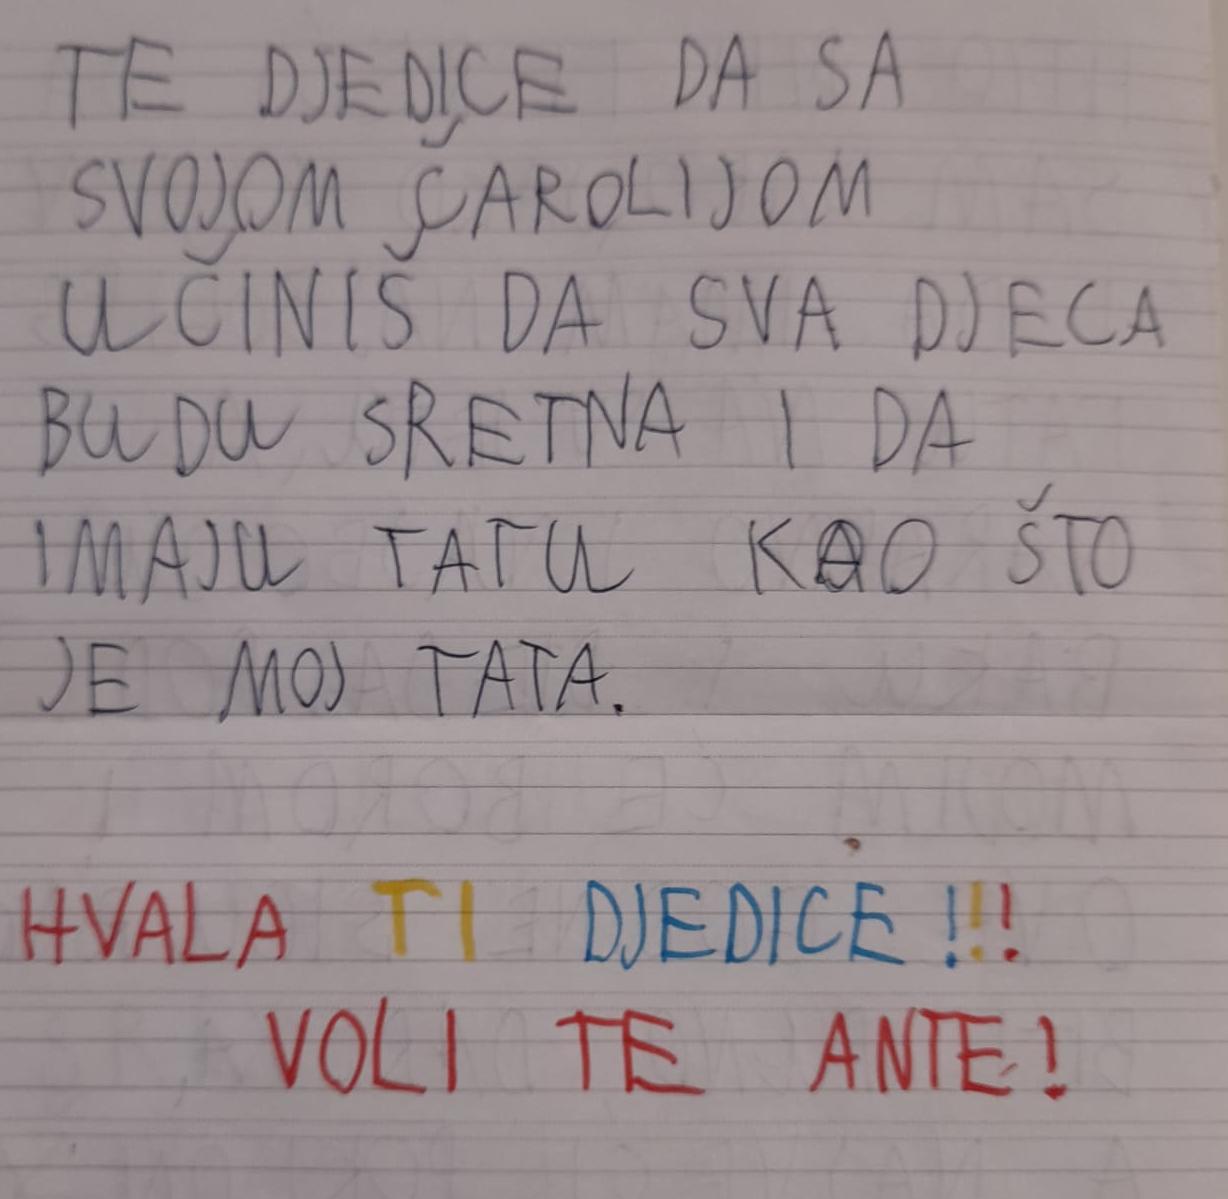 TE DJEDICE DA SA
SVOJOM ČAROLIJOM
UČINIŠ DA SVA DJECA
BUDU SRETNA I DA
IMAJU TATU KAO ŠTO
JE MOJ TATA.
HVALA TI DJEDICE!!!
VOLI TE ANTE!